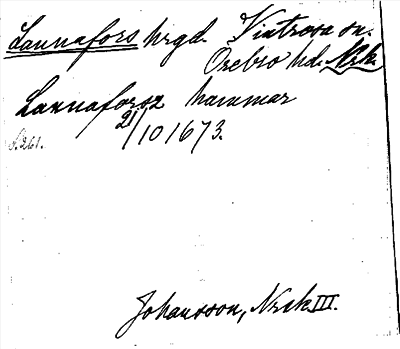 Lannafors hrgd. Vintrosa sn.
Örebro hd. Nrk.
Lannaforsz hammar
21/10 1673.
S. 261.
Johansson, Nrk III.